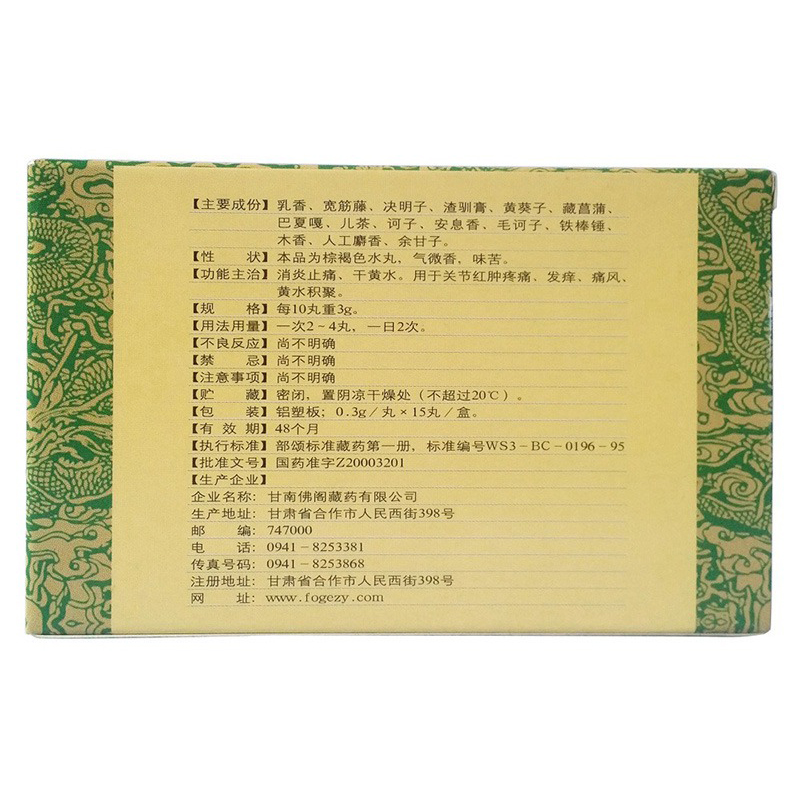 【主要成份】乳香、宽筋藤、决明子、渣驯膏、黄葵子、藏菖蒲、
巴夏嘎、儿茶、诃子、安息香、毛诃子、铁棒锤、
木香、人工麝香、余甘子。
【性 状】本品为棕褐色水丸，气微香，味苦。
【功能主治】消炎止痛、干黄水。用于关节红肿疼痛、发痒、痛风、
黄水积聚。
【规 格】每10丸重3g。
【用法用量】一次2~4丸，一日2次。
【不良反应】尚不明确
【禁 忌】尚不明确
【注意事项】尚不明确
【贮 藏】密闭，置阴凉干燥处（不超过20℃）。
【包 装】铝塑板；0.3g/丸×15丸/盒。
【有 效 期】48个月
【执行标准】部颂标准藏药第一册，标准编号WS3-BC-0196-95
【批准文号】国药准字Z20003201
【生产企业】
企业名称：甘南佛阁藏药有限公司
生产地址：甘肃省合作市人民西街398号
邮 编：747000
电 话：0941-8253381
传真号码：0941-8253868
注册地址：甘肃省合作市人民西街398号
网 址：www.fogezy.com